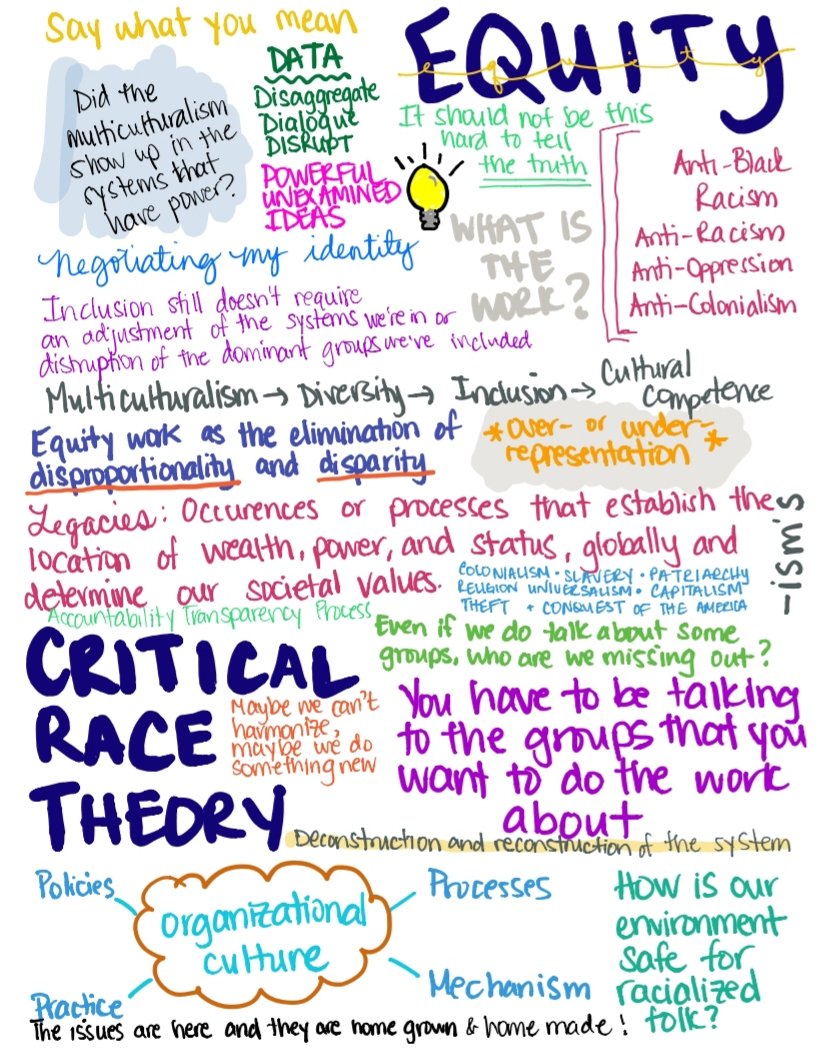 Say what you mean
EQUITY
equity
Did the
multiculturalism
show up in the
systems that
have power?
DATA
Disaggregate
Dialogue
DISRUPT
POWERFUL
UNEXAMINED
IDEAS
It should not be this
hard to tell
the truth
Anti-Black
Racism
Anti-Racism
Anti-Oppression
Anti-Colonialism
WHAT IS
THE
WORK?
Negotiating my identity
Inclusion still doesn't require
an adjustment of the systems we're in or
distruption of the dominant groups we've included
Multiculturalism → Diversity → Inclusion → Cultural
Competence
Equity work as the elimination of
disproportionality and disparity
*over- or under-
representation*
Legacies: Occurences or processes that establish the
location of wealth, power, and status, globally and
determine our societal values.
COLONIALISM · SLAVERY · PATRIARCHY
RELIGION UNIVERSALISM · CAPITALISM
THEFT + CONQUEST OF THE AMERICA
-ism's
Accountability Transparency Process
CRITICAL
RACE
THEORY
Even if we do talk about some
groups, who are we missing out?
Maybe we can't
harmonize,
maybe we do
something new
You have to be talking
to the groups that you
want to do the work
about
Deconstruction and reconstruction of the system
Policies
organizational
culture
Processes
Practice
Mechanism
How is our
environment
safe for
racialized
folk?
The issues are here and they are home grown & home made!